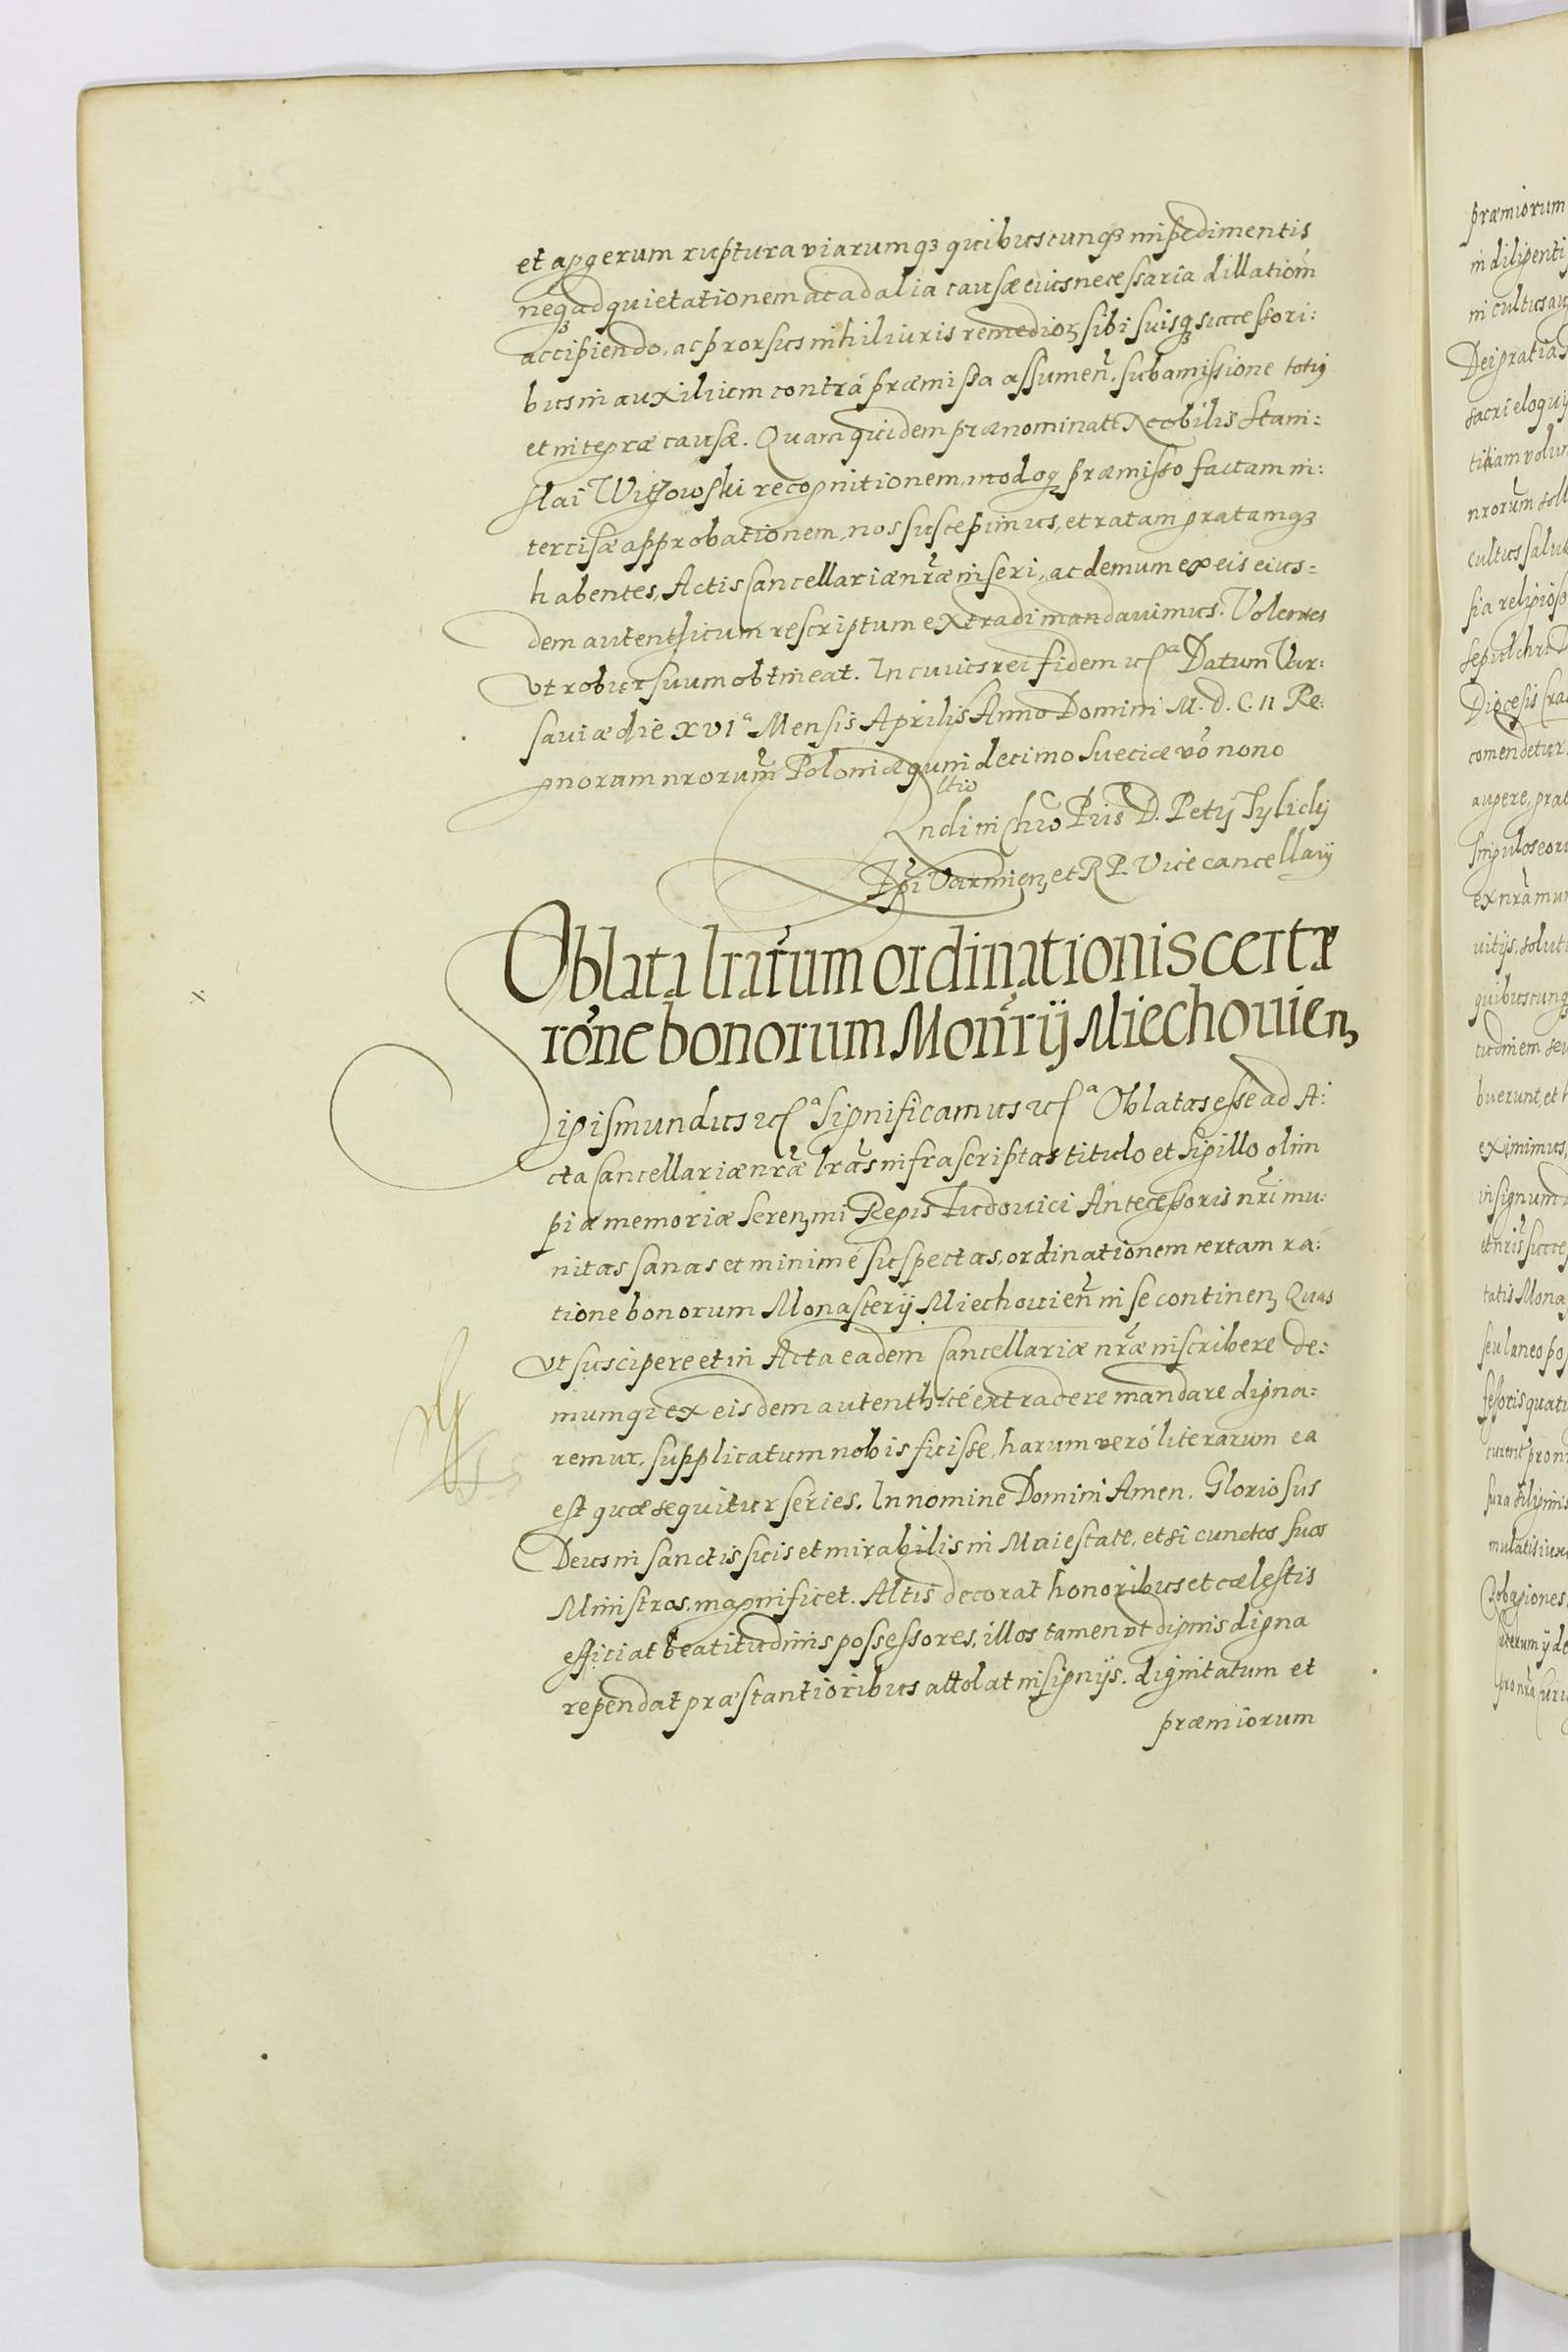 et aggerum ruptura viarumqꝫ quibuscunqꝫ impedimentis
neqꝫ ad quietationem ac ad alia causæ eius necessaria dillationem
accipiendo, ac prorsus nihil iuris remedioꝝ sibi suisqꝫ successori:
bus in auxilium contrà præmissa assumen̄. sub amissione totiꝰ
et integræ causæ. Quam quidem prænominati Nobilis Stani:
slai recognitionem, modoqꝫ præmisso factam in:
tercisæ approbationem, nos suscepimus, et ratam gratamqꝫ
habentes, Actis Cancellariæ nr̃æ inseri, ac demum ex eis eius:
dem autenthicum rescriptum extradi mandauimus. Volentes
vt robur suum obtineat. In cuius rei fidem ꝛcᵃ Datum Var:
sauiæ die XVIᵃ Mensis Aprilis Anno Domini M. D. C. II Re:
gnorum nrorum̃ Poloniæ quin decimo Sueciæ vo᷃ nono
ltio
Rndi in Chr̃o Pris D. Petri Tylicky
Epĩ Varmienꝫ et R P. Vicecancellarij
Oblata lrarum̃ ordinationis certæ
rõne bonorum Monr̃ij Miechouienꝫ
Sigismundus ꝛcᵃ Significamus ꝛcᵃ Oblatas esse ad A:
cta Cancellariæ nr̃æ lrãs infrascriptas titulo et Sigillo olim
piæ memoriæ Serenꝫmi Regis Ludouici Antecessoris nrĩ mu:
nitas sanas et minimè suspectas, ordinationem certam ra:
tione bonorum Monasterij Miechouien̄ in se continenꝫ Quas
vt suscipere et in Acta eadem Cancellariæ nr̃æ inscribere de:
mumqꝫ ex eisdem autenthicè extradere mandare digna:
remur, supplicatum nobis fuisse, harum verò literarum ea
est quæ sequitur series. In nomine Domini Amen. Gloriosus
Deus in sanctis suis et mirabilis in Maiestate, etsi cunctos suos
Ministros, magnificet. Altis decorat honoribus et cælestis
efficiat beatitudinis possessores, illos tamen vt dignis digna
rependat præstantioribus attolat insignijs. dignitatum et
præmiorum
præmiorum
in diligenti
ni cultus au
Dei gratias
sacri eloquij
titiam volun
nrorum̃ soll
cultus salut
sia religioso
sepulchri D
Diocesis Cra
comendetur,
augere, grat
singulos eoru
ex nr̃a mun
uitijs, solut
quibuscunq
tudinem seu
buerunt, et h
eximimus,
in signum
et nrĩs succe
tatis Mona
seu laneo po
sessoris quatu